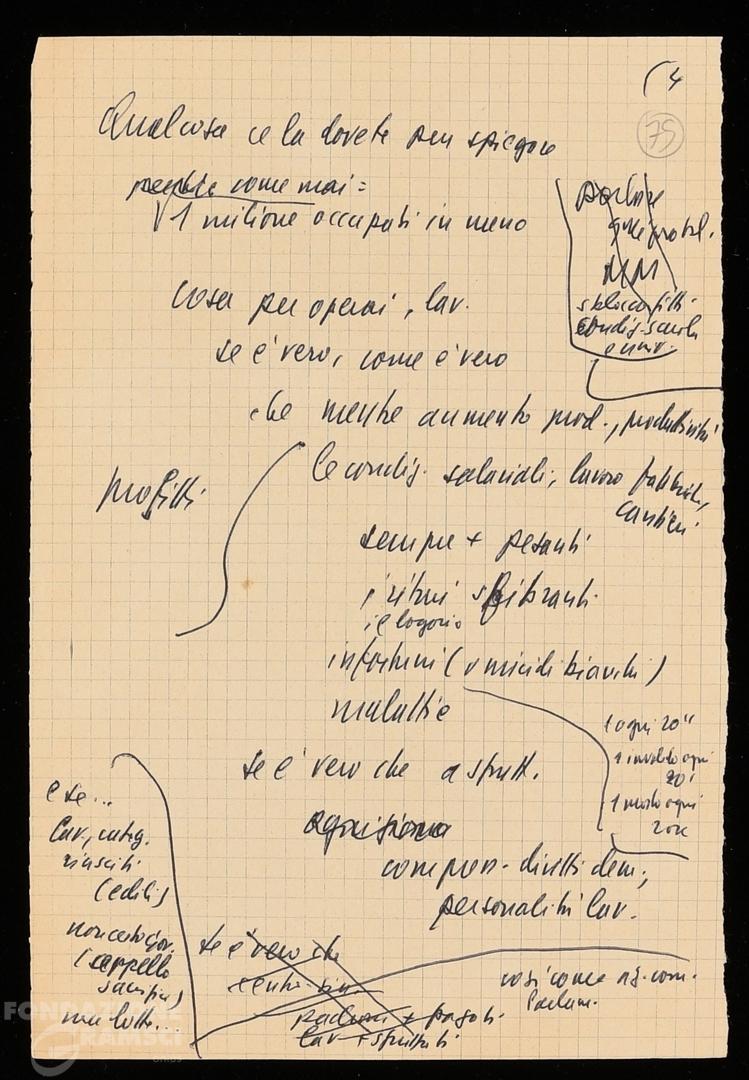 (4
75
Qualcosa ce la dovete pur spiegare
perchè come mai =
1 milione occupati in meno
parlare
MM
sblocco fitti
condiz. scuola
e univ.
cosa per operai, lav.
se è vero, come è vero
che mentre aumento prod., produttività
profitti
le condiz. salariali, lavoro fabbriche,
cantieri
sempre + pesanti
i ritmi sfibranti
i e logorio
infortuni (omicidi bianchi)
malattie
1 ogni 20"
1 invalido ogni
20'
1 morto ogni
2 ore
se è vero che a sfrutt.
compon. diritti dem,
personalità lav.
e se...
lav., categ.
riusciti
(edili)
non certo gov.
(cappello
sacrifici)
ma lotte...
se è vero che
padroni + pagati
lav + sfruttati
così come
Parlam.
FONDAZIONE
GRAMSCI
ONLUS